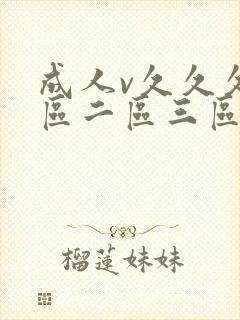 成人v久久久
區二區三區
榴蓮妹妹